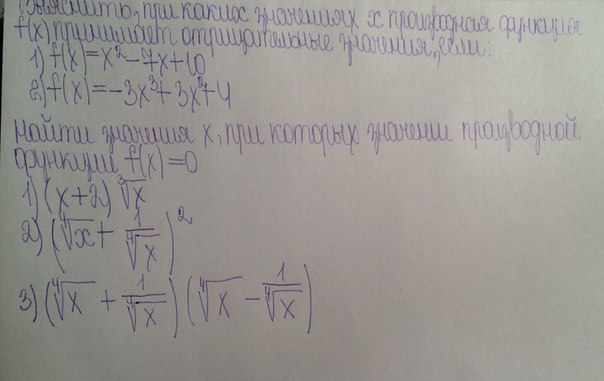 Выяснить, при каких значениях x производная функции
f(x) принимает отрицательные значения, если:
1) f(x)=x²-7x+10
2) f(x)=-3x³+3x²+4
найти значения x, при которых значение производной
функции f(x)=0
1) (x+2) ∛x
2) (∜x + 1/∜x)²
3) (∜x + 1/∜x) (∜x - 1/∜x)